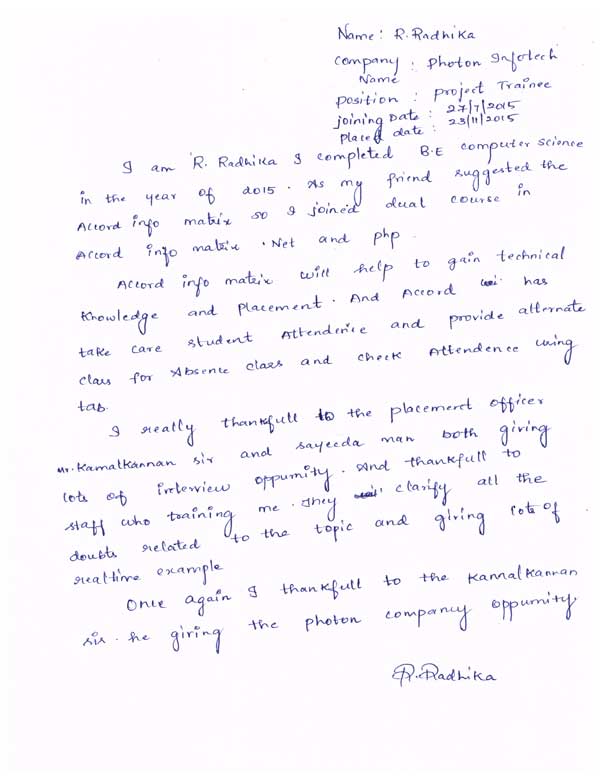 Name: R. Radhika
Company : Photon Infotech
Name
Position : Project Trainee
joining Date : 27/7/2015
Placed date : 23/11/2015
I am R. Radhika I completed B.E computer science
in the year of 2015. As my friend suggested the
Accord info matrix so I joined dual course in
Accord info matrix .Net and php.
Accord info matrix will help to gain technical
knowledge and placement. And Accord has
take care student Attendence and provide alternate
class for Absence class and check Attendence using
tab.
I really thankfull to the placement officer
Mr. Kamalkannan sir and sayeeda mam both giving
lots of interview oppurnity. And thankfull to
staff who training me. They clarify all the
doubts related to the topic and giving lots of
realtime example
Once again I thankfull to the Kamalkannan
sir. he giving the photon company oppurnity.
R. Radhika